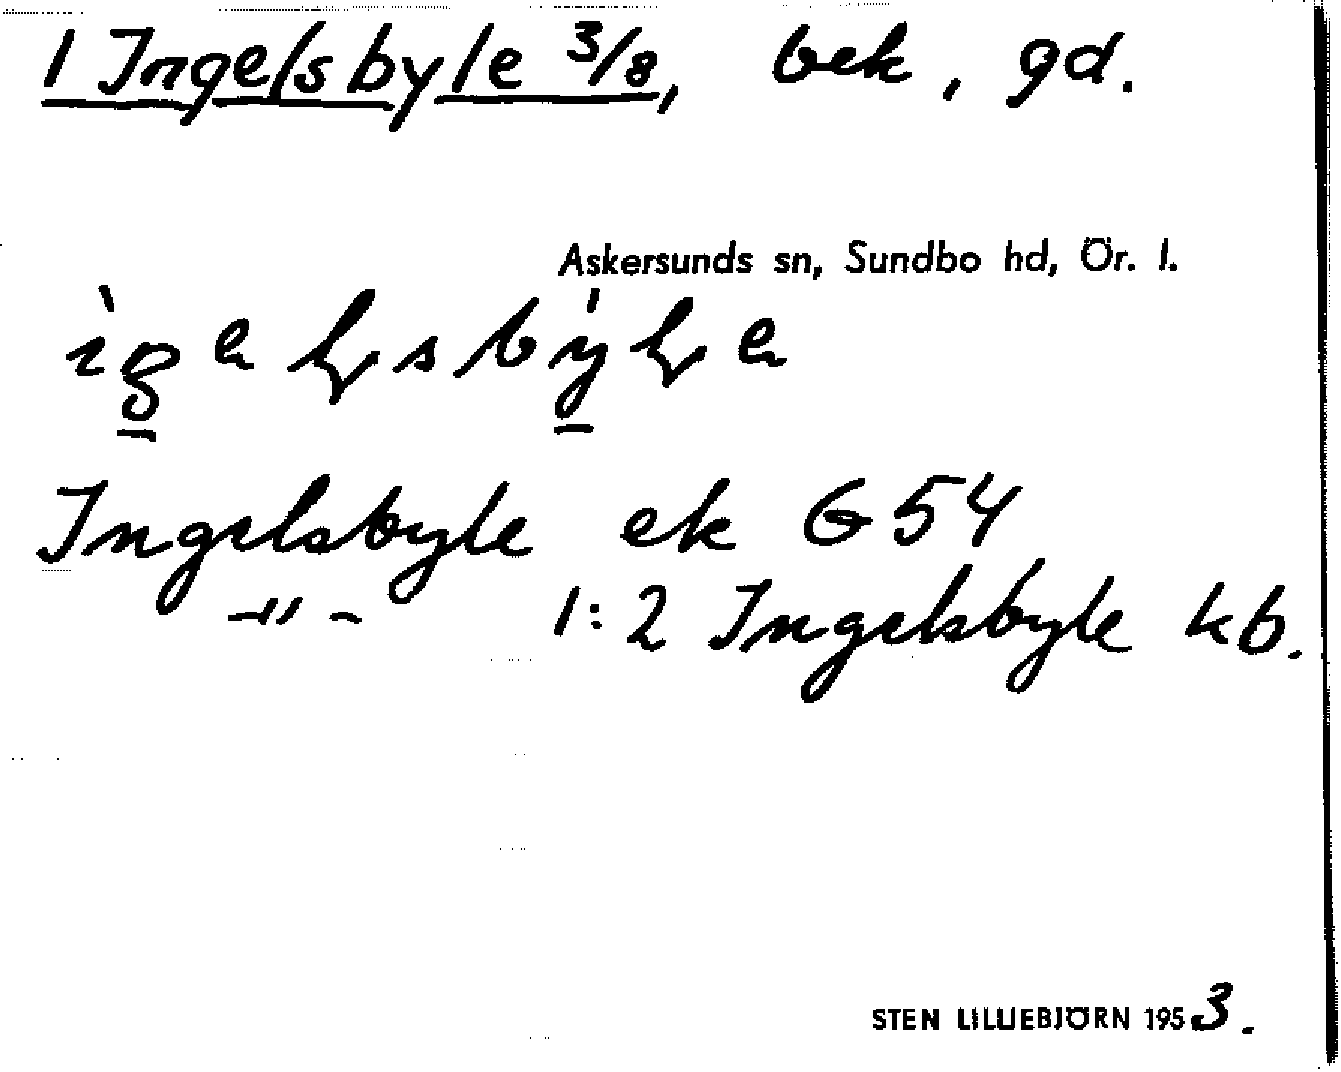 1 Ingelsbyle 3/8, bek, gd.
Askersunds sn, Sundbo hd, Ör. l.
Ingelsbyle ek G54
–"– 1:2 Ingelsbyle kb.
STEN LILLIEBJÖRN 1953.